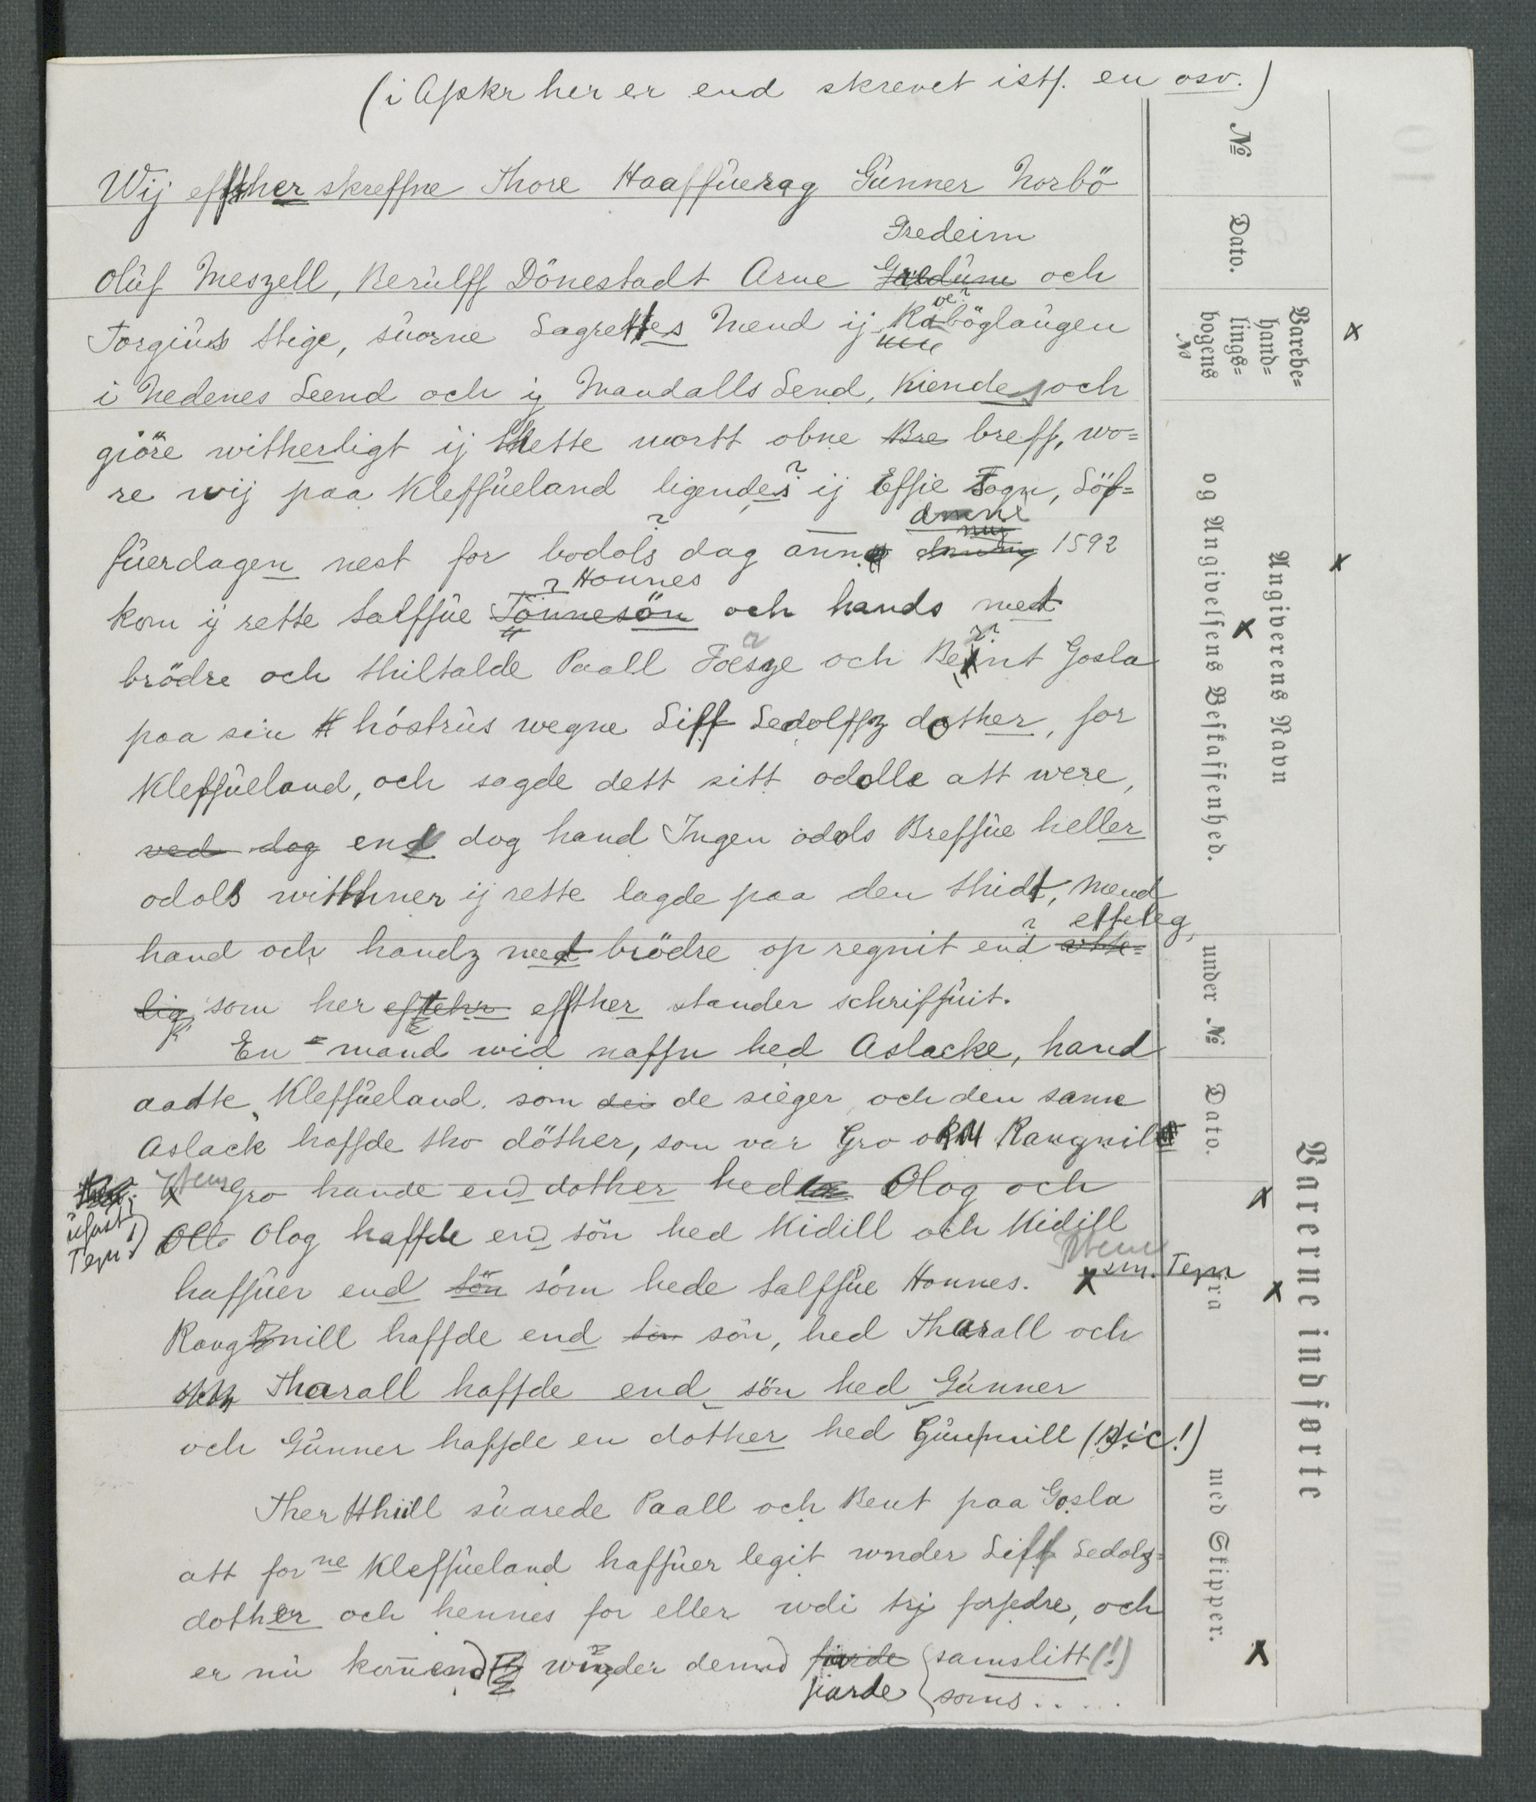 (i Afskr her er end skrevet istf. en osv.)
Wij effther skreffne Thore Haaffuerag Gunner Norbö
Gredeim
Oluf Meszell, Berulff Dönestadt Arne och
Torgiuls Stige, suorne Lagrettes Mend ij böglaugen
i Nedenes Leend och ij Mandalls Lend, Kiendes och
giöre witherligt ij thette wortt obne Bre breff, wo=
re wij paa Kleffueland ligendes ij Effie Sogn, Löf=
fuerdagen nest for bodols dag anno 1592
Honnes
kom ij rette Salffue Tönnesön och hands met
brödre och thiltalde Paall Foesze och Beint Gosla
paa sin höstrus wegne Siff Sedolffz dother, for
Kleffueland, och sagde dett sitt odolle att were,
ved dog end dog hand Ingen odols Breffue heller
odols withner ij rette lagde paa den thidt, mend
etteleg
hand och handz met brödre op regnit end ette=
lig som her efftehr effther stander schriffuit.
En mand wid naffn hed Aslacke, hand
aadte Kleffueland. som de sieger och den same
Aslack haffde tho döther, som var Gro och Rangnil
Item Gro hande end dother hed Olog och
ufust
Tegn!)
Olo Olog haffde end sön hed Kidill och Kidill
Item
sm. Tegn
haffuer end sön som hede Salffue Honnes.
Rangnill haffde end sön, hed Tharall och
och Tharall haffde end sön hed Gunner
och Gunner haffde en dother hed (sic!)
Ther thiill suarede Paall och Bent paa Gosla
att forne Kleffueland haffuer legit wnder Siff Sedolz=
dother och hennes for eller wdi trj forfedre, och
er nu kommend wnder demnd fiorde samslitt (!)
fiarde soms . . . . .
No
Dato.
Varebe=
hand=
lings=
bogens
No
Angiverens Navn
og Angivelsens Beskaffenhed.
Varerne indførte
under No Dato.
fra
med Skipper.